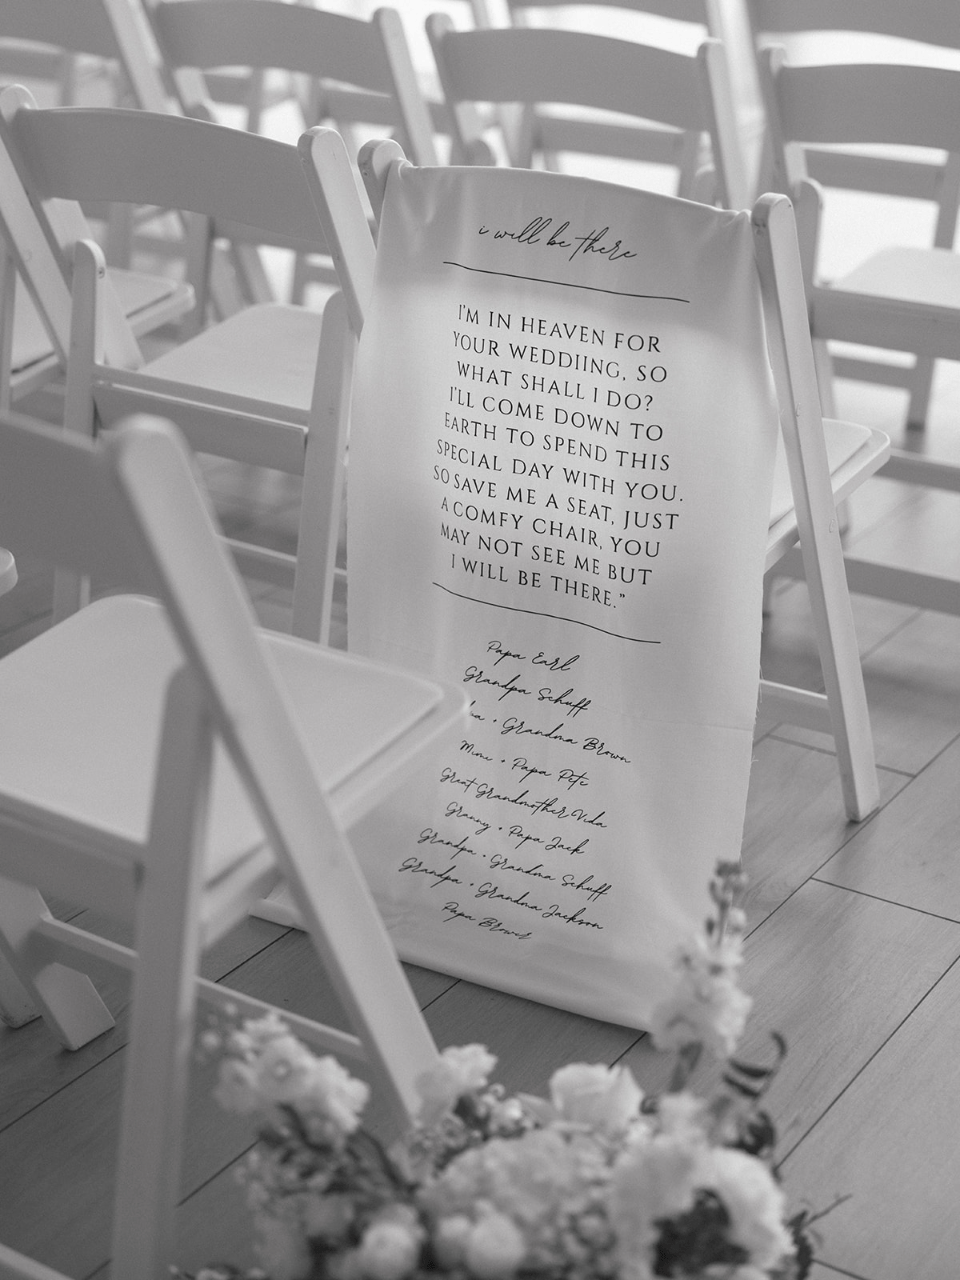 i will be there
I'M IN HEAVEN FOR
YOUR WEDDIING, SO
WHAT SHALL I DO?
I'LL COME DOWN TO
EARTH TO SPEND THIS
SPECIAL DAY WITH YOU.
SO SAVE ME A SEAT, JUST
A COMFY CHAIR, YOU
MAY NOT SEE ME BUT
I WILL BE THERE."
Papa Earl
Grandpa Schuff
+ Grandma Brown
+ Papa Pete
Great Grandmother Vida
Granny + Papa Jack
Grandpa + Grandma Schuff
Grandpa + Grandma Jackson
Papa